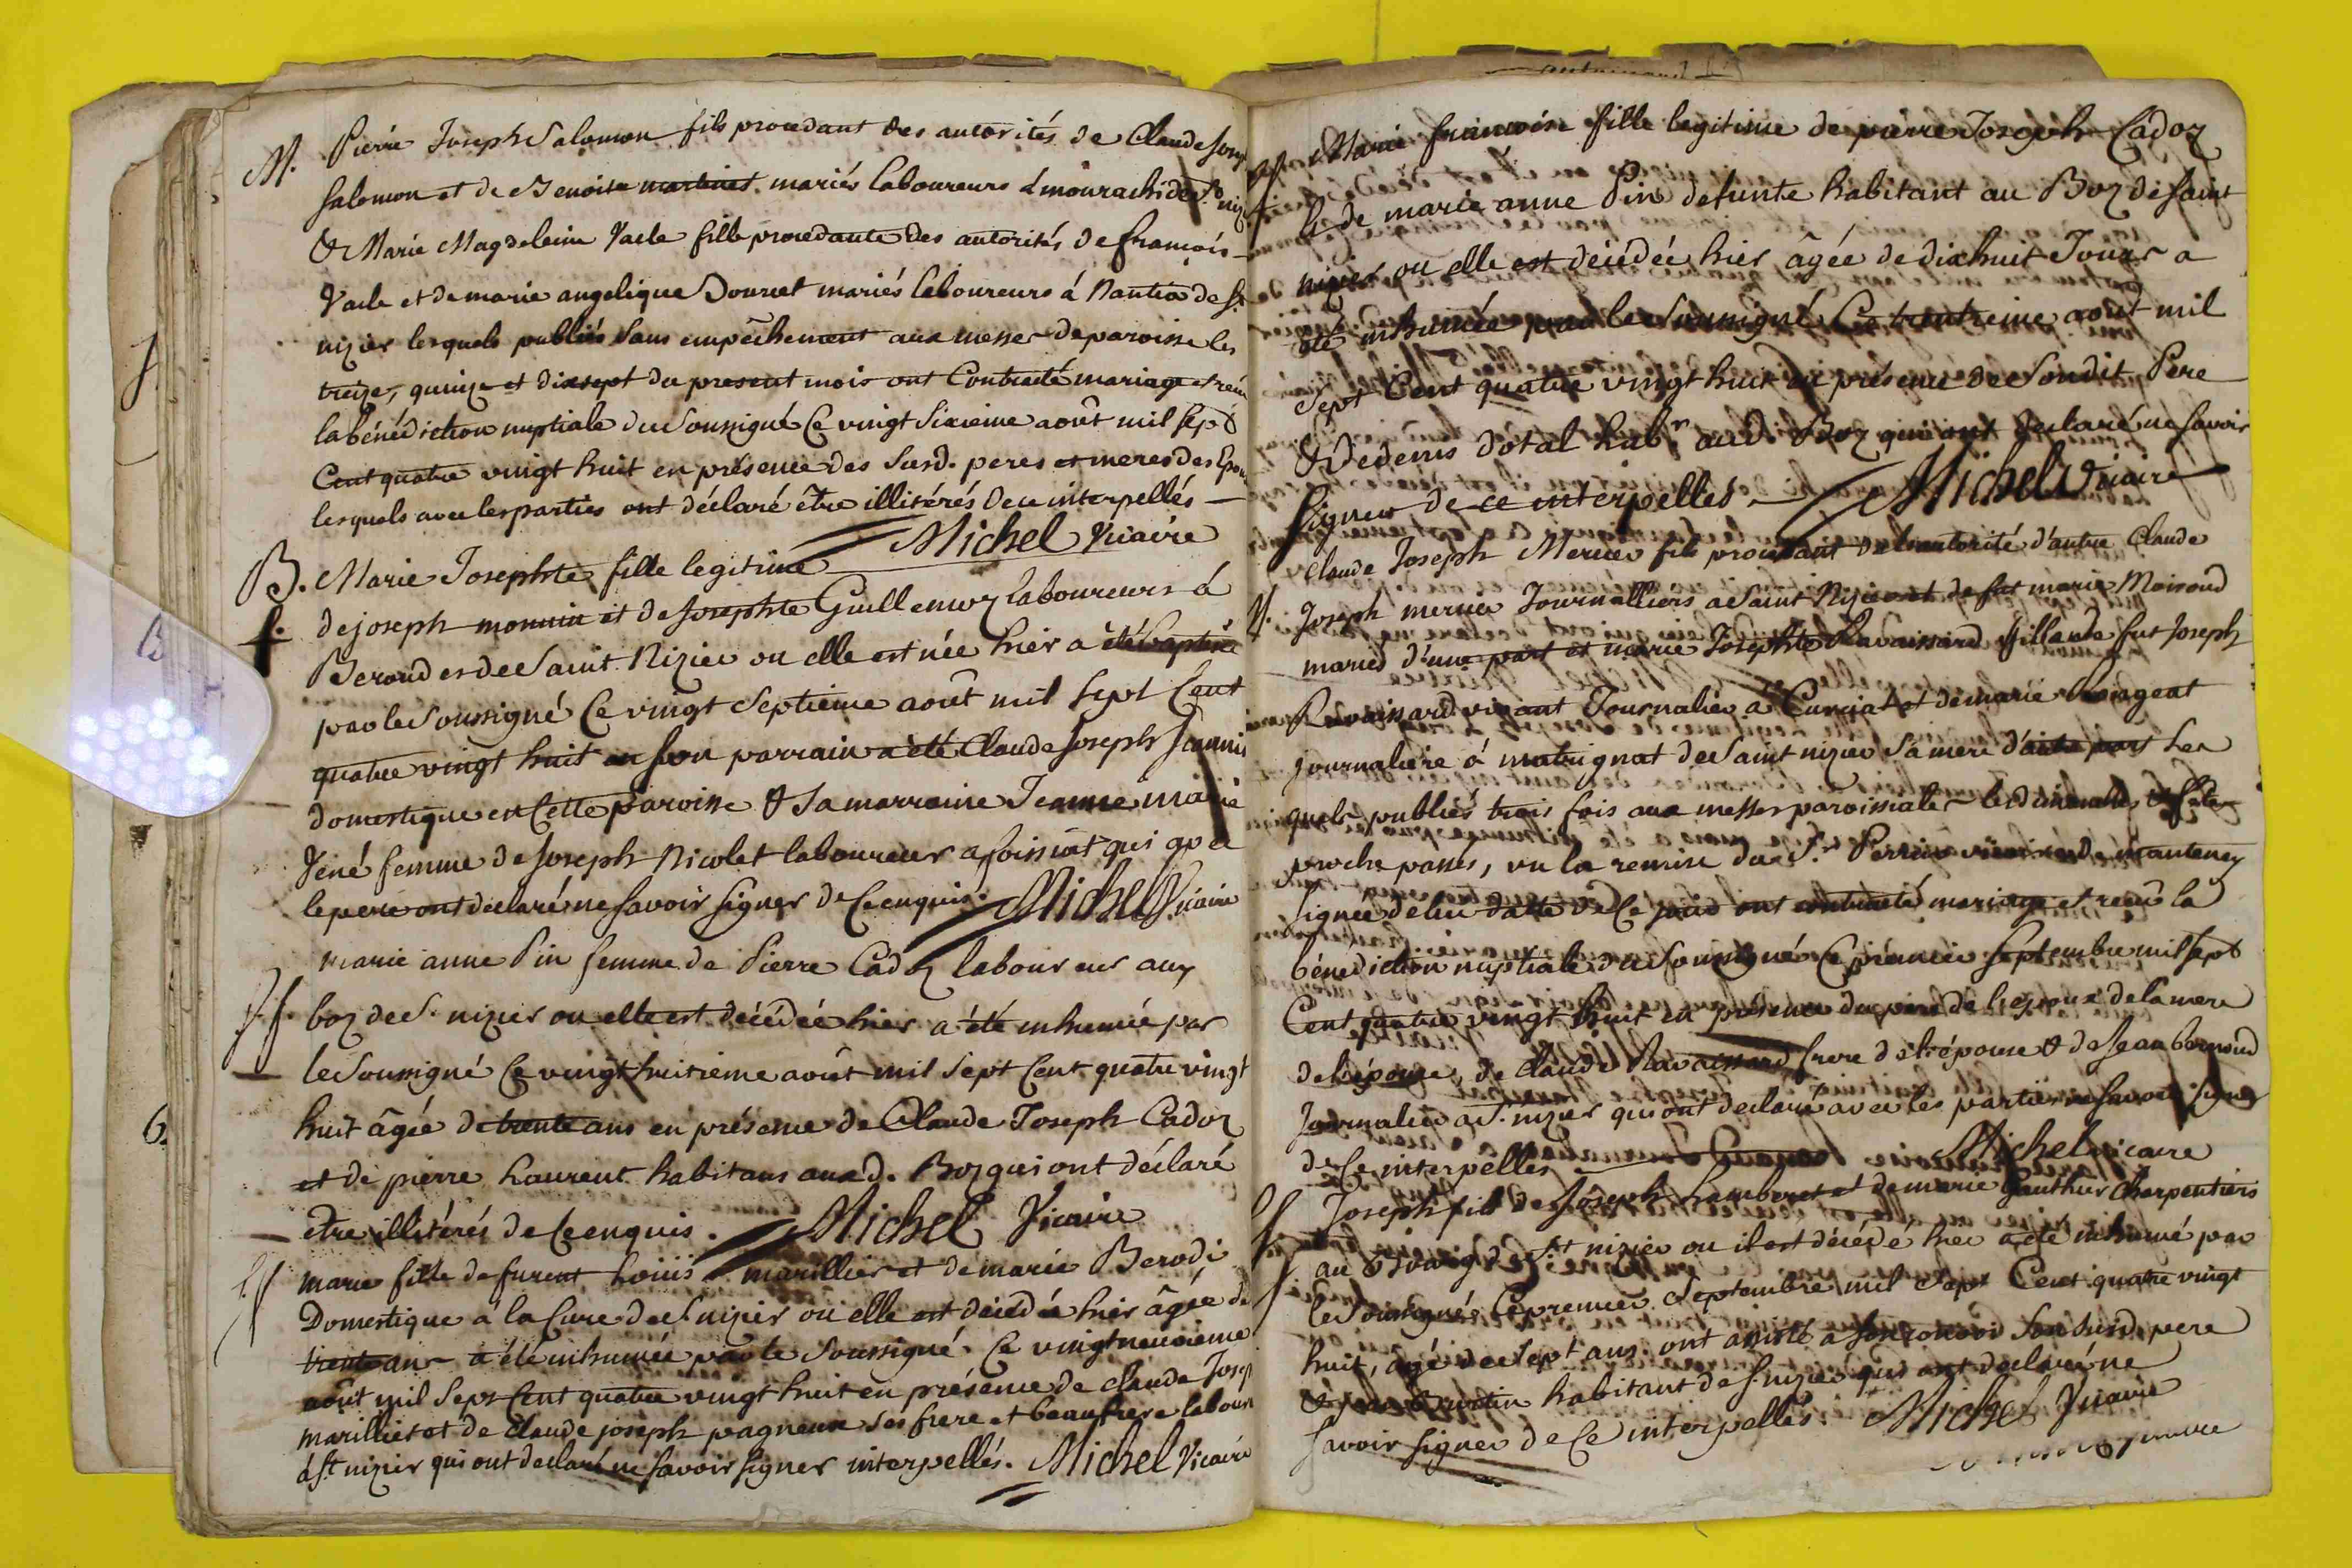 M. Pierre Joseph Salomon fils procedant des autorités de Claude Josep
Salomon et de Benoite martinet mariés laboureurs à mourachide St niz
& Marie Magdeleine Vacle fille procedante des autorités de francois
Vacle et de marie angelique Douvet mariés laboureurs à Nantia de St
nizier lesquels publiés sans empêchement aux messes de paroisse les
treize, quinze et dixsept du present mois ont Contracté mariage et recu
la bénédiction nuptiale du soussigné Ce vingt Sixieme août mil sept
Cent quatre vingt huit en présence des susd. peres et meres des Epou
lesquels avec les parties ont déclaré être illitérés de ce interpellés
Michel Vicaire
B. Marie Josephte fille legitime
f. de joseph monnin et de Josephte Guillemoz laboureurs à
Berouderde Saint Nizier ou elle est née hier a été baptisée
par le Soussigné Ce vingt Septieme août mil sept Cent
quatre vingt huit son parrain a été Claude Joseph Jeannin
domestique en Cette paroisse & sa marraine Jeanne marie
Jené femme de Joseph Nicolet laboureur a foissiat qui avec
le pere ont déclaré ne Savoir Signer de Ce enquis. Michel Vicaire
marie anne Pin femme de Pierre Cadoz laboureur aux
Sf. boz de S. nizier ou elle est décédée hier a été inhumée par
le Soussigné Ce vingt huitieme août mil sept Cent quatre vingt
huit âgée de trente ans en présence de Claude Joseph Cadoz
6. et de pierre Laurent habitans auxd. Boz qui ont déclaré
être illitérés de Ce enquis. Michel Vicaire
Sf marie fille de furent Louis marillier et de marie Berodi
Domestique a la Cure de S nizier ou elle est décédée hier âgée de
trente ans a été inhumée par le Soussigné Ce vingt neuvieme
août mil Sept Cent quatre vingt huit en présence de Claude Josep
marillier et de Claude joseph pagneux ses frere et beaufrere labour
à St nizier qui ont déclaré ne savoir signer interpellés. Michel Vicaire
Sf Marie francoise fille legitime de pierre Joseph Cadoz
& de marie anne Pin defunte habitant au Boz de Saint
nizier ou elle est décédée hier âgée de dixhuit Jours a
été inhumée par le Soussigné Ce trentieme août mil
Sept Cent quatre vingt huit en présence de Sondit Pere
& de denis Dotal habt auxd. Boz qui ont déclaré ne savoir
Signer de ce interpellés. Michel Vicaire
Claude Joseph Mercier fils procedant de l'autorité d'autre Claude
M. Joseph mercier Journalliers a Saint Nizier et de fue marie Moiroud
mariés d'une part et marie Josephte Ravaissard fille de fut Joseph
Ravaissard vivant Journalier a Curciat et de marie
journaliere à matrignat de Saint nizier Sa mere d'autre part Les
quels publiés trois fois aux messes paroissiales les dimanches & fetes
proche passés, vu la remise du Sr Perrin vicaire de mantenay
Signée de lui datte de Ce jour ont contracté mariage et recu la
bénédiction nuptiale du Soussigné Ce premier Septembre mil sept
Cent quatre vingt huit en présence du pere de l'epoux de la mere
de l'épouse, de Claude Ravaissard frere de l'épouse & de Jean bernoud
Journalier a S. nizier qui ont déclaré avec les parties ne savoir signer
de Ce interpellés Michel vicaire
Sf Joseph fils de Joseph Lamberet et de marie Gauthier Charpentiers
au Bourg de St nizier ou il est décédé hier a été inhumé par
le Soussigné Ce premier Septembre mil Sept Cent quatre vingt
huit, âgé de Sept ans ont assisté a son convoi Son susd. pere
& habitant de S nizier qui ont déclaré ne
Savoir Signer de Ce interpellés. Michel Vicaire